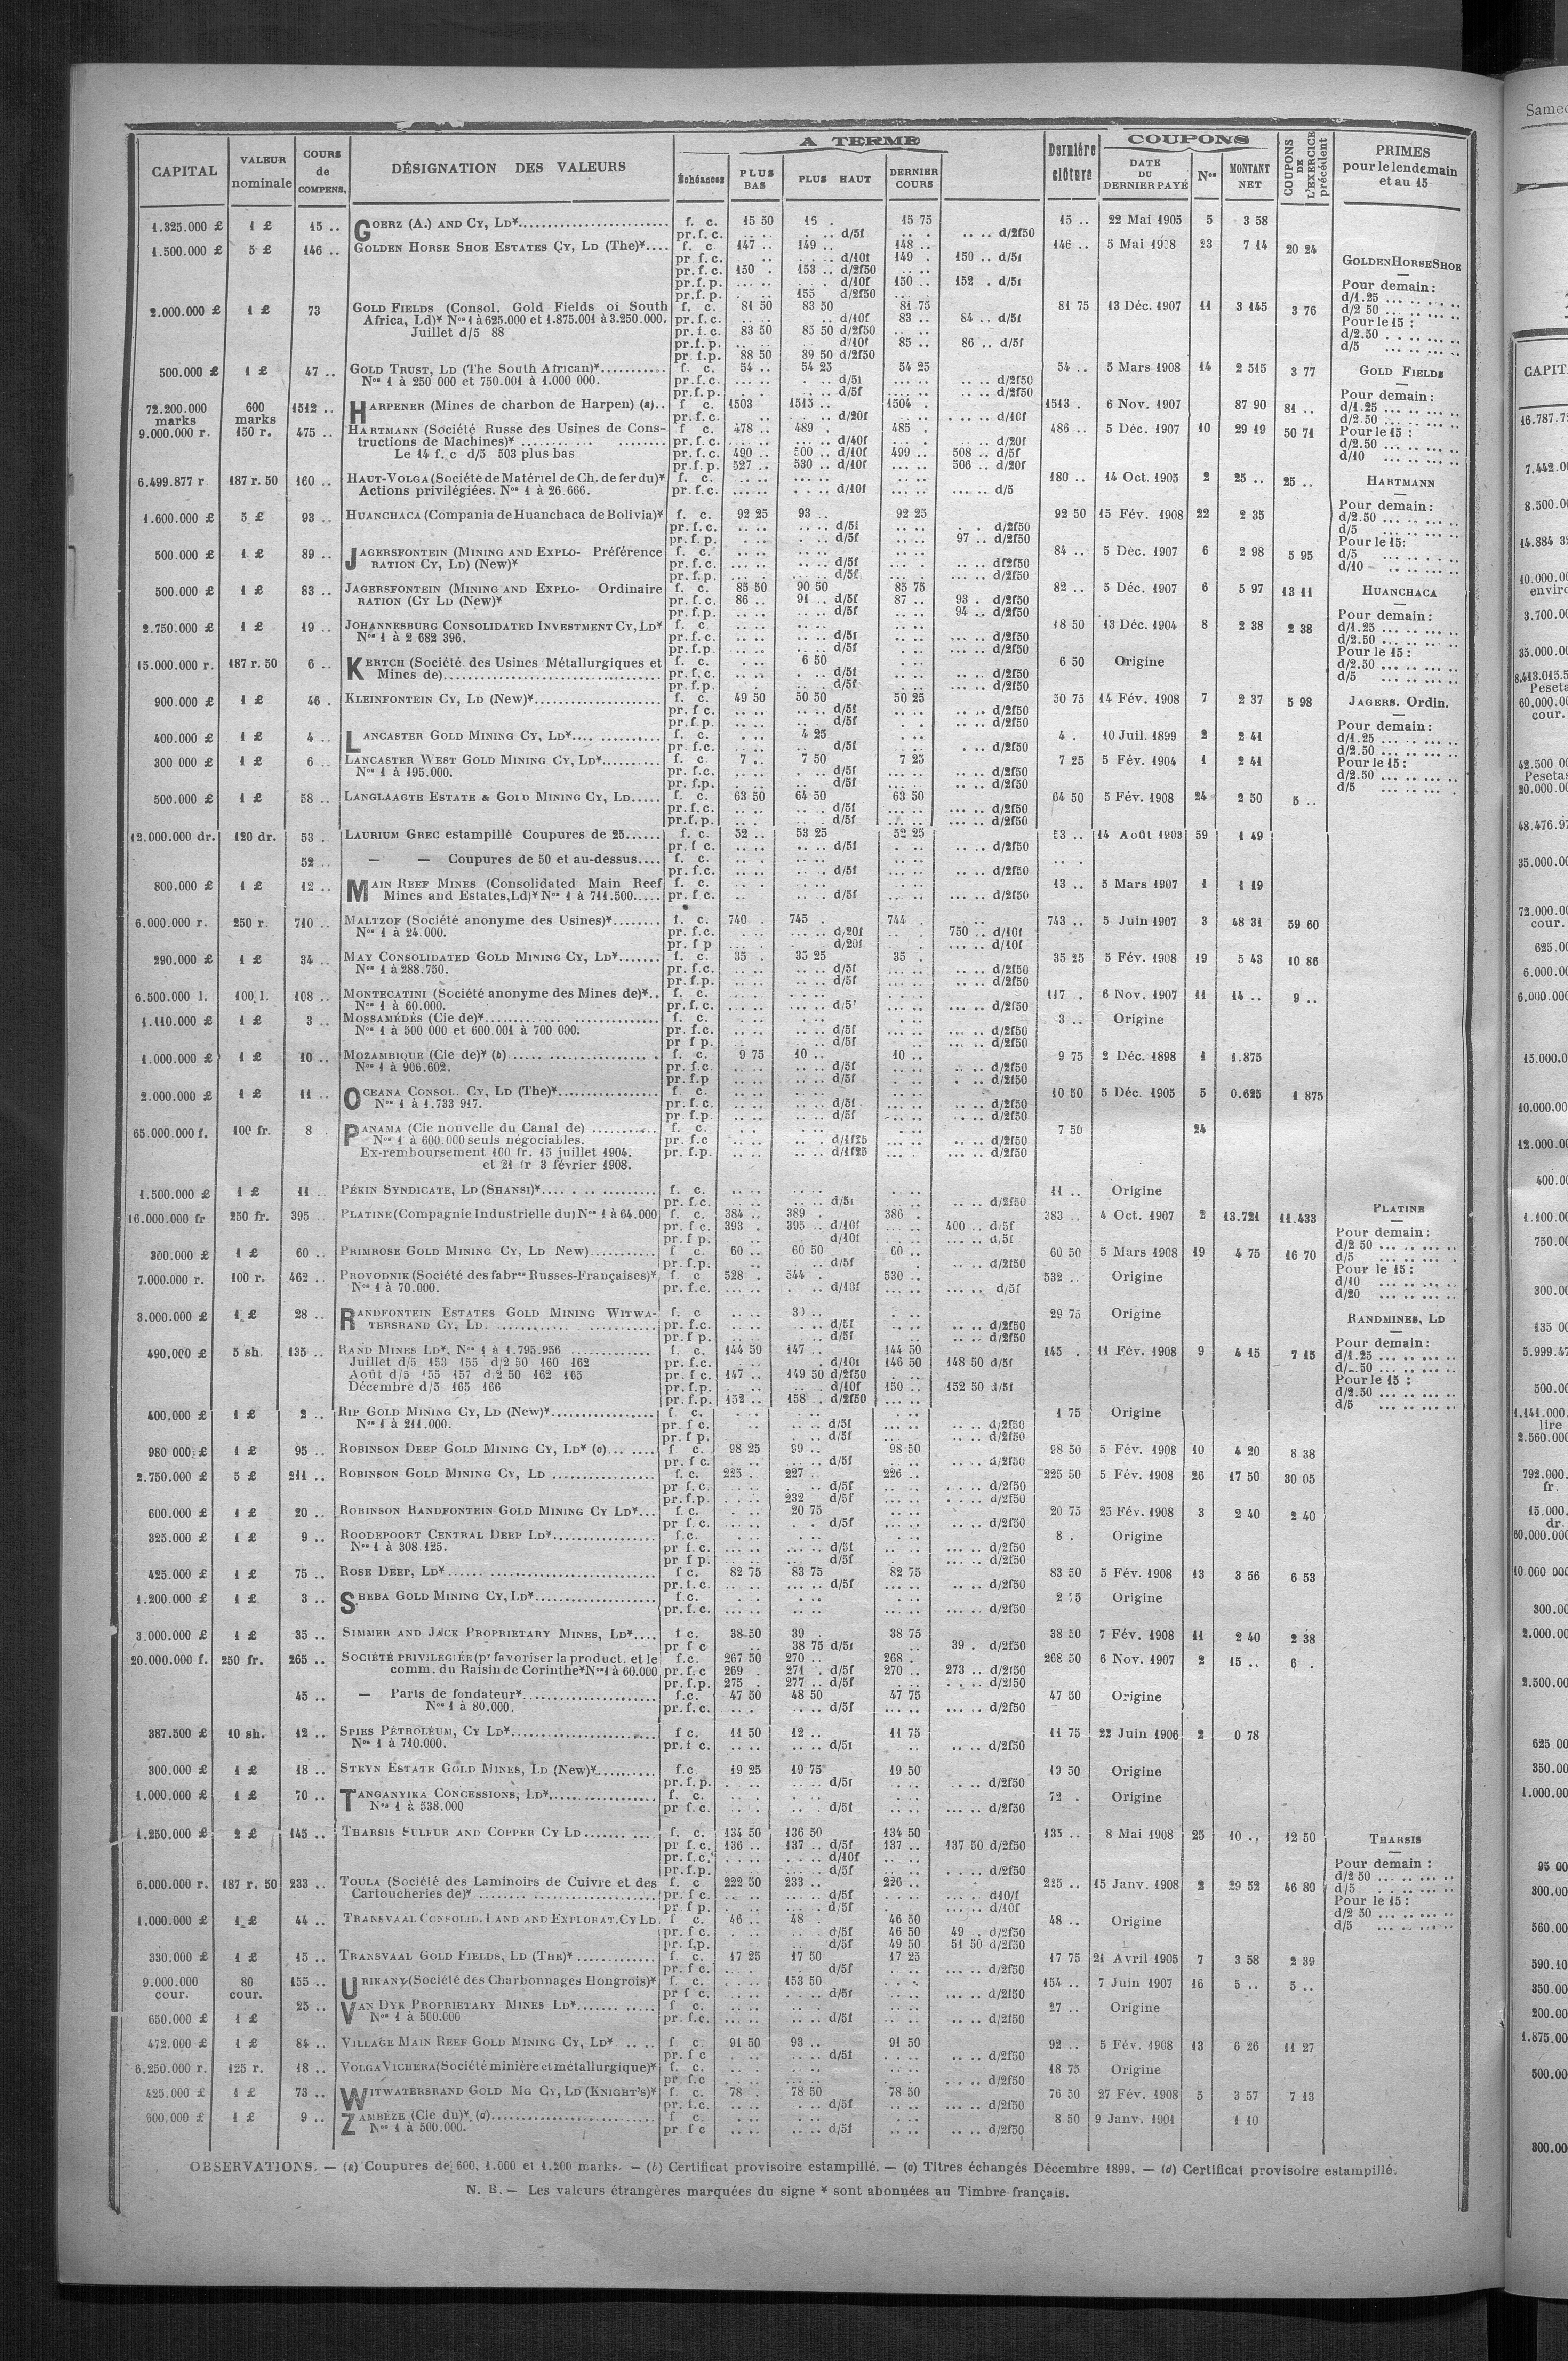 A TERME
COUPONS
CAPITAL | VALEUR nominale | COURS de COMPENS. | DÉSIGNATION DES VALEURS | Échéances | PLUS BAS | PLUS HAUT | DERNIER COURS | Dernière clôture | DATE DU DERNIER PAYÉ | Nos | MONTANT NET | COUPONS DE L'EXERCICE précédent | PRIMES pour le lendemain et au 15
1.325.000 £ | 1 £ | 15 .. | GOERZ (A.) AND CY, LD* | f. c. | 15 50 | 15 75 | 15 .. | 22 Mai 1905 | 5 | 3 58
pr. f. c. | d/5f | d/2f50
1.500.000 £ | 5 £ | 146 .. | GOLDEN HORSE SHOE ESTATES CY, LD (The)* | f. c | 147 .. | 149 .. | 148 .. | 146 .. | 5 Mai 1908 | 23 | 7 14 | 20 24
pr. f. c. | d/10f | 149 . | 150 .. d/5f
pr. f. c. | 150 . | 153 .. d/2f50
pr. f. p. | d/10f | 150 .. | 152 . d/5f
pr. f. p. | 155 d/2f50
2.000.000 £ | 1 £ | 73 | GOLD FIELDS (Consol. Gold Fields of South | f. c. | 81 50 | 83 50 | 81 75 | 81 75 | 13 Déc. 1907 | 11 | 3 145 | 3 76
Africa, Ld)* Nos 1 à 625.000 et 1.875.001 à 3.250.000. | pr. f. c. | d/10f | 83 .. | 84 .. d/5f
Juillet d/5 88 | pr. f. c. | 83 50 | 85 50 d/2f50
pr. f. p. | d/10f | 85 .. | 86 .. d/5f
pr. f. p. | 88 50 | 89 50 d/2f50
500.000 £ | 1 £ | 47 .. | GOLD TRUST, LD (The South African)* | f. c. | 54 .. | 54 25 | 54 25 | 54 .. | 5 Mars 1908 | 14 | 2 515 | 3 77
Nos 1 à 250 000 et 750.001 à 1.000 000. | pr. f. c. | d/5f | d/2f50
pr. f. p. | d/5f | d/2f50
72.200.000 marks | 600 marks | 1512 .. | HARPENER (Mines de charbon de Harpen) (a) | f c. | 1503 | 1515 .. | 1504 . | 1513 . | 6 Nov. 1907 | 87 90 | 81 ..
pr. f. c. | d/20f | d/10f
9.000.000 r. | 150 r. | 475 .. | HARTMANN (Société Russe des Usines de Cons- | f c. | 478 .. | 489 . | 485 . | 486 .. | 5 Déc. 1907 | 10 | 29 19 | 50 71
tructions de Machines)* | pr. f. c. | d/40f | d/20f
Le 14 f. c d/5 503 plus bas | pr. f. c | 490 .. | 500 .. d/10f | 499 .. | 508 .. d/5f
pr. f. p. | 527 .. | 530 .. d/10f | 506 .. d/20f
6.499.877 r | 187 r. 50 | 160 .. | HAUT-VOLGA (Société de Matériel de Ch. de fer du)* | f. c. | 180 .. | 14 Oct. 1905 | 2 | 25 .. | 25 ..
Actions privilégiées. Nos 1 à 26.666. | pr. f. c. | d/10f | d/5
1.600.000 £ | 5 £ | 93 .. | HUANCHACA (Compania de Huanchaca de Bolivia)* | f. c. | 92 25 | 93 .. | 92 25 | 92 50 | 15 Fév. 1908 | 22 | 2 35
pr. f. c. | d/5f | d/2f50
pr. f. p. | d/5f | 97 .. d/2f50
500.000 £ | 1 £ | 89 .. | JAGERSFONTEIN (MINING AND EXPLO- Préférence | f. c. | 84 .. | 5 Déc. 1907 | 6 | 2 98 | 5 95
RATION CY, LD) (New)* | pr. f. c. | d/5f | df2f50
pr. f. p. | d/5f | d/2f50
500.000 £ | 1 £ | 83 .. | JAGERSFONTEIN (MINING AND EXPLO- Ordinaire | f. c. | 85 50 | 90 50 | 85 75 | 82 .. | 5 Déc. 1907 | 6 | 5 97 | 13 11
RATION (CY LD (New)* | pr. f. c. | 86 .. | 91 .. d/5f | 87 .. | 93 . d/2f50
pr. f. p. | d/5f | 94 .. d/2f50
2.750.000 £ | 1 £ | 19 .. | JOHANNESBURG CONSOLIDATED INVESTMENT CY, LD* | f. c | 18 50 | 13 Déc. 1904 | 8 | 2 38 | 2 38
Nos 1 à 2 682 396. | pr. f. c. | d/5f | d/2f50
pr. f. p. | d/5f | d/2f50
15.000.000 r. | 187 r. 50 | 6 .. | KERTCH (Société des Usines Métallurgiques et | f. c. | 6 50 | 6 50 | Origine
Mines de) | pr. f. c. | d/5f | d/2f50
pr. f. p. | d/5f | d/2f50
900.000 £ | 1 £ | 46 . | KLEINFONTEIN CY, LD (New)* | f. c. | 49 50 | 50 50 | 50 25 | 50 75 | 14 Fév. 1908 | 7 | 2 37 | 5 98
pr. f c. | d/5f | d/2f50
pr. f. p. | d/5f | d/2f50
400.000 £ | 1 £ | 4 .. | LANCASTER GOLD MINING CY, LD* | f. c. | 4 25 | 4 . | 10 Juil. 1899 | 2 | 2 41
pr. f. c. | d/5f | d/2f50
300 000 £ | 1 £ | 6 .. | LANCASTER WEST GOLD MINING CY, LD* | f. c | 7 .. | 7 50 | 7 25 | 7 25 | 5 Fév. 1904 | 1 | 2 41
Nos 1 à 195.000. | pr. f. c. | d/5f | d/2f50
pr. f. p. | d/5f | d/2f50
500.000 £ | 1 £ | 58 .. | LANGLAAGTE ESTATE & GOLD MINING CY, LD | f. c. | 63 50 | 64 50 | 63 50 | 64 50 | 5 Fév. 1908 | 24 | 2 50 | 5 ..
pr. f. c. | d/5f | d/2f50
pr. f. p. | d/5f | d/2f50
12.000.000 dr. | 120 dr. | 53 . | LAURIUM GREC estampillé Coupures de 25 | f. c. | 52 .. | 53 25 | 52 25 | 53 .. | 14 Août 1903 | 59 | 1 49
pr. f c. | d/5f | d/2f50
52 .. | — — Coupures de 50 et au-dessus | f. c.
pr. f. c. | d/5f | d/2f50
800.000 £ | 1 £ | 12 .. | MAIN REEF MINES (Consolidated Main Reef | f. c. | 13 .. | 5 Mars 1907 | 1 | 1 19
Mines and Estates, Ld)* Nos 1 à 711.500 | pr. f c. | d/5f | d/2f50
6.000.000 r. | 250 r. | 710 .. | MALTZOF (Société anonyme des Usines)* | f. c. | 740 . | 745 . | 744 . | 743 .. | 5 Juin 1907 | 3 | 48 31 | 59 60
Nos 1 à 24.000. | pr. f. c. | d/20f | 750 .. d/10f
pr. f p | d/20f | d/10f
290.000 £ | 1 £ | 34 .. | MAY CONSOLIDATED GOLD MINING CY, LD* | f. c. | 35 . | 35 25 | 35 . | 35 25 | 5 Fév. 1908 | 19 | 5 43 | 10 86
Nos 1 à 288.750. | pr. f. c. | d/5f | d/2f50
pr. f. p. | d/5f | d/2f50
6.500.000 l. | 100 l. | 108 .. | MONTECATINI (Société anonyme des Mines de)* | f. c. | 117 . | 6 Nov. 1907 | 11 | 14 .. | 9 ..
Nos 1 à 60.000. | pr. f. c. | d/5f | d/2f50
1.110.000 £ | 1 £ | 3 .. | MOSSAMÉDÈS (Cie de)* | f. c. | 3 .. | Origine
Nos 1 à 500 000 et 600.001 à 700 000. | pr. f. c. | d/5f | d/2f50
pr f p. | d/5f | d/2f50
1.000.000 £ | 1 £ | 10 .. | MOZAMBIQUE (Cie de)* (b) | f. c. | 9 75 | 10 .. | 10 .. | 9 75 | 2 Déc. 1898 | 1 | 1.875
Nos 1 à 906.602. | pr. f. c. | d/5f | d/2f50
pr. f. p | d/5f | d/2f50
2.000.000 £ | 1 £ | 11 .. | OCEANA CONSOL. CY, LD (The)* | f. c | 10 50 | 5 Déc. 1905 | 5 | 0.625 | 1 875
Nos 1 à 1.733 917. | pr. f. c. | d/5f | d/2f50
pr. f. p. | d/5f | d/2f50
65.000.000 f. | 100 fr. | 8 | PANAMA (Cie nouvelle du Canal de) | f. c. | 7 50 | 24
Nos 1 à 600.000 seuls négociables. | pr. f. c | d/1f25 | d/2f50
Ex-remboursement 100 fr. 15 juillet 1904. | pr. f. p. | d/1f25 | d/2f50
et 21 fr 3 février 1908.
1.500.000 £ | 1 £ | 11 .. | PÉKIN SYNDICATE, LD (SHANSI)* | f. c. | 11 .. | Origine
pr. f. c. | d/5f | d/2f50
16.000.000 fr | 250 fr. | 395 .. | PLATINE (Compagnie Industrielle du) Nos 1 à 64.000 | f. c. | 384 .. | 389 . | 386 . | 383 .. | 4 Oct. 1907 | 2 | 13.721 | 11.433
pr. f c. | 393 . | 395 .. d/10f | 400 .. d/5f
pr. f p. | d/10f | d/5f
300.000 £ | 1 £ | 60 .. | PRIMROSE GOLD MINING CY, LD New) | f c. | 60 .. | 60 50 | 60 .. | 60 50 | 5 Mars 1908 | 19 | 4 75 | 16 70
pr. f. p. | d/5f | d/2f50
7.000.000 r. | 100 r. | 462 .. | PROVODNIK (Société des fabres Russes-Françaises)* | f. c | 528 . | 544 . | 530 .. | 532 .. | Origine
Nos 1 à 70.000. | pr. f. c. | d/10f | d/5f
3.000.000 £ | 1 £ | 28 .. | RANDFONTEIN ESTATES GOLD MINING WITWA- | f. c | 29 75 | Origine
TERSRAND CY, LD. | pr. f. c. | d/5f | d/2f50
pr. f p. | d/5f | d/2f50
490.000 £ | 5 sh. | 135 .. | RAND MINES LD*, Nos 1 à 1.795.956 | f. c. | 144 50 | 147 .. | 144 50 | 145 . | 11 Fév. 1908 | 9 | 4 15 | 7 15
Juillet d/5 153 155 d/2 50 160 162 | pr. f. c. | d/10f | 146 50 | 148 50 d/5f
Août d/5 155 157 d/2 50 162 165 | pr. f c. | 147 .. | 149 50 d/2f50
Décembre d/5 165 166 | pr. f. p. | d/10f | 150 .. | 152 50 d/5f
pr. f. p. | 152 .. | 158 .. d/2f50
400.000 £ | 1 £ | 2 .. | RIP GOLD MINING CY, LD (New)* | f c. | 1 75 | Origine
Nos 1 à 211.000. | pr. f c. | d/5f | d/2f50
pr. f p. | d/5f | d/2f50
980 000 £ | 1 £ | 95 .. | ROBINSON DEEP GOLD MINING CY, LD* (c) | f c. | 98 25 | 99 .. | 98 50 | 98 50 | 5 Fév. 1908 | 10 | 4 20 | 8 38
pr. f c. | d/5f | d/2f50
2.750.000 £ | 5 £ | 211 .. | ROBINSON GOLD MINING CY, LD | f. c. | 225 . | 227 .. | 226 .. | 225 50 | 5 Fév. 1908 | 26 | 17 50 | 30 05
pr f. c. | d/5f | d/2f50
pr. f. p. | 232 d/5f | d/2f50
600.000 £ | 1 £ | 20 .. | ROBINSON RANDFONTEIN GOLD MINING CY LD* | f. c. | 20 75 | 20 75 | 25 Fév. 1908 | 3 | 2 40 | 2 40
pr f. c. | d/5f | d/2f50
325.000 £ | 1 £ | 9 .. | ROODEPOORT CENTRAL DEEP LD* | f. c. | 8 . | Origine
Nos 1 à 308.125. | pr f. c. | d/5f | d/2f50
pr f p. | d/5f | d/2f50
425.000 £ | 1 £ | 75 .. | ROSE DEEP, LD* | f c. | 82 75 | 83 75 | 82 75 | 83 50 | 5 Fév. 1908 | 13 | 3 56 | 6 53
pr. f. c. | d/5f | d/2f50
1.200.000 £ | 1 £ | 3 .. | SHEBA GOLD MINING CY, LD* | f. c. | Origine
pr. f. c. | d/2f50
3.000.000 £ | 1 £ | 35 .. | SIMMER AND JACK PROPRIETARY MINES, LD* | f c. | 38 50 | 39 . | 38 75 | 38 50 | 7 Fév. 1908 | 11 | 2 40 | 2 38
pr f c | 38 75 d/5f | 39 . d/2f50
20.000.000 f. | 250 fr. | 265 .. | SOCIÉTÉ PRIVILEGIÉE (pr favoriser la product. et le | f. c. | 267 50 | 270 .. | 268 . | 268 50 | 6 Nov. 1907 | 2 | 15 .. | 6 .
comm. du Raisin de Corinthe* Nos 1 à 60.000 | pr. f. c | 269 . | 271 . d/5f | 270 .. | 273 .. d/2f50
pr. f. p. | 275 . | 277 .. d/5f | d/2f50
45 .. | — Parts de fondateur* | f. c. | 47 50 | 48 50 | 47 75 | 47 50 | Origine
Nos 1 à 80.000. | pr. f. c. | d/5f | d/2f50
387.500 £ | 10 sh. | 12 .. | SPIES PÉTROLEUM, CY LD* | f c. | 11 50 | 12 .. | 11 75 | 11 75 | 22 Juin 1906 | 2 | 0 78
Nos 1 à 710.000. | pr. f c. | d/5f | d/2f50
300.000 £ | 1 £ | 18 .. | STEYN ESTATE GOLD MINES, LD (New)* | f. c | 19 25 | 19 75 | 19 50 | 19 50 | Origine
pr. f. p. | d/5f | d/2f50
1.000.000 £ | 1 £ | 70 .. | TANGANYIKA CONCESSIONS, LD* | f. c. | 72 . | Origine
Nos 1 à 538.000 | pr f. c. | d/5f | d/2f50
1.250.000 £ | 2 £ | 145 .. | THARSIS SULFUR AND COPPER CY LD | f. c. | 134 50 | 136 50 | 134 50 | 135 .. | 8 Mai 1908 | 25 | 10 .. | 12 50
pr f. c. | 136 .. | 137 .. d/5f | 137 .. | 137 50 d/2f50
pr. f. c. | d/10f
pr. f. p. | d/5f | d/2f50
6.000.000 r. | 187 r. 50 | 233 .. | TOULA (Société des Laminoirs de Cuivre et des | f. c | 222 50 | 233 .. | 226 .. | 225 .. | 15 Janv. 1908 | 2 | 29 52 | 46 80
Cartoucheries de)* | pr f c. | d/5f | d10/f
pr f p. | d/5f | d/10f
1.000.000 £ | 1 £ | 44 .. | TRANSVAAL CONSOLID. LAND AND EXPLORAT. CY LD. | f c. | 46 .. | 48 . | 46 50 | 48 .. | Origine
pr. f c. | d/5f | 46 50 | 49 . d/2f50
pr. f. p. | d/5f | 49 50 | 51 50 d/2f50
330.000 £ | 1 £ | 15 .. | TRANSVAAL GOLD FIELDS, LD (THE)* | f. c. | 17 25 | 17 50 | 17 25 | 17 75 | 21 Avril 1905 | 7 | 3 58 | 2 39
pr. f c. | d/5f | d/2f50
9.000.000 cour. | 80 cour. | 155 .. | URIKANY (Société des Charbonnages Hongrois)* | f. c. | 153 50 | 154 .. | 7 Juin 1907 | 16 | 5 .. | 5 ..
pr f c. | d/5f | d/2f50
650.000 £ | 1 £ | 25 .. | VAN DYK PROPRIETARY MINES LD* | f c. | 27 .. | Origine
Nos 1 à 500.000 | pr. f. c. | d/2f50
472.000 £ | 1 £ | 84 .. | VILLAGE MAIN REEF GOLD MINING CY, LD* | f c. | 91 50 | 93 .. | 91 50 | 92 .. | 5 Fév. 1908 | 13 | 6 26 | 11 27
pr. f c | d/5f | d/2f50
6.250.000 r. | 125 r. | 18 .. | VOLGA VICHERA (Société minière et métallurgique)* | f. c. | 18 75 | Origine
pr f. c | d/2f50
425.000 £ | 1 £ | 73 .. | WITWATERSRAND GOLD MG CY, LD (KNIGHT'S)* | f. c. | 78 . | 78 50 | 78 50 | 76 50 | 27 Fév. 1908 | 5 | 3 57 | 7 13
pr. f. c. | d/5f | d/2f50
600.000 £ | 1 £ | 9 .. | ZAMBÈZE (Cie du)* (d) | f c. | 8 50 | 9 Janv. 1901 | 1 10
Nos 1 à 500.000. | pr. f c | d/5f | d/2f50
GOLDEN HORSE SHOE
Pour demain :
d/1.25
d/2 50
Pour le 15 :
d/2.50
d/5
GOLD FIELDS
Pour demain :
d/1.25
d/2.50
Pour le 15 :
d/2.50
d/10
HARTMANN
Pour demain :
d/2.50
d/5
Pour le 15 :
d/5
d/10
HUANCHACA
Pour demain :
d/1.25
d/2.50
Pour le 15 :
d/2.50
d/5
JAGERS. Ordin.
Pour demain :
d/1.25
d/2.50
Pour le 15 :
d/2.50
d/5
PLATINE
Pour demain :
d/2 50
d/5
Pour le 15 :
d/10
d/20
RANDMINES, LD
Pour demain :
d/1.25
d/2.50
Pour le 15 :
d/2.50
d/5
THARSIS
Pour demain :
d/2 50
d/5
Pour le 15 :
d/2 50
d/5
OBSERVATIONS. — (a) Coupures de 600, 1.000 et 1.200 marks. — (b) Certificat provisoire estampillé. — (c) Titres échangés Décembre 1899. — (d) Certificat provisoire estampillé.
N. B. — Les valeurs étrangères marquées du signe * sont abonnées au Timbre français.